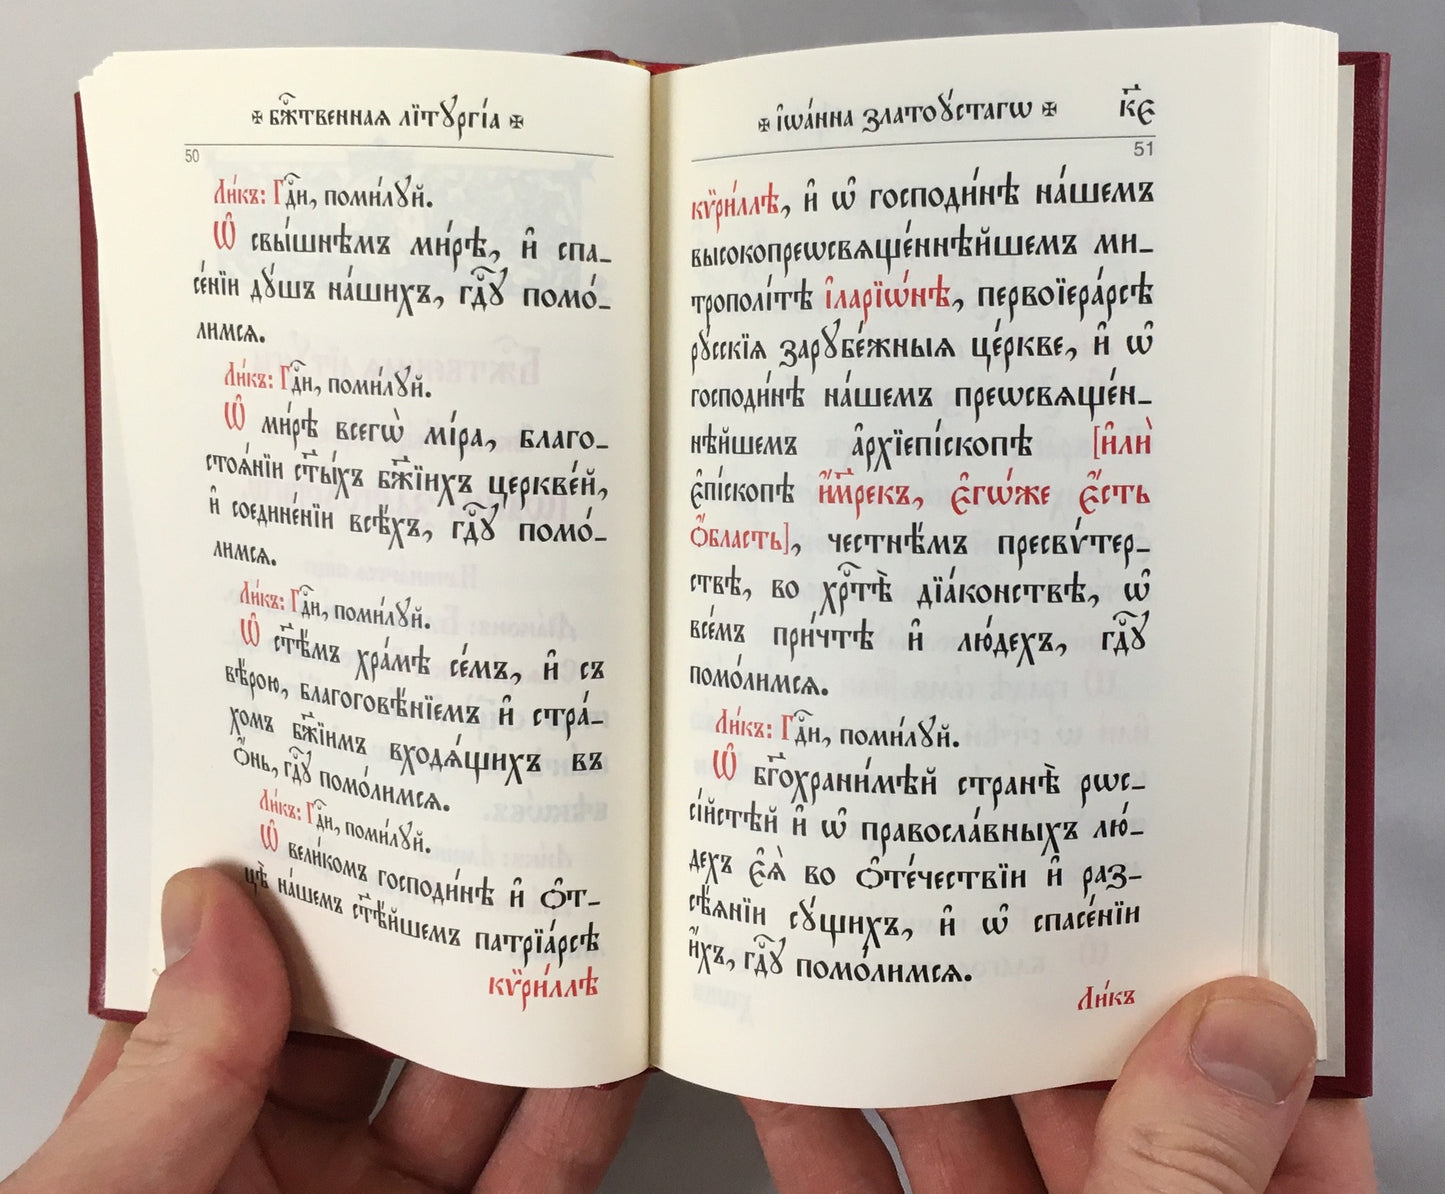 ✠ бж҃твеннаѧ лїтꙋргі́а ✠
50
Ли́къ: Гдⷭ҇и, поми́лꙋй.
Ѡ҆ свы́шнѣмъ ми́рѣ, и҆ спа-
се́нїи дꙋ́шъ на́шихъ, гдⷭ҇ꙋ помо́-
лимсѧ.
Ли́къ: Гдⷭ҇и, поми́лꙋй.
Ѡ҆ ми́рѣ всегѡ̀ мі́ра, благо-
стоѧ́нїи ст҃ы́хъ бж҃їихъ церкве́й,
и҆ соедине́нїи всѣ́хъ, гдⷭ҇ꙋ помо́-
лимсѧ.
Ли́къ: Гдⷭ҇и, поми́лꙋй.
Ѡ҆ ст҃ѣ́мъ хра́мѣ се́мъ, и҆ съ
вѣ́рою, благоговѣ́нїемъ и҆ стра́-
хомъ бж҃їимъ входѧ́щихъ въ
ѻ҆́нь, гдⷭ҇ꙋ помо́лимсѧ.
Ли́къ: Гдⷭ҇и, поми́лꙋй.
Ѡ҆ вели́комъ господи́нѣ и҆ ѻ҆т-
цѣ̀ на́шемъ ст҃ѣ́йшемъ патрїа́рсѣ
кѷри́ллѣ
✠ і҆ѡа́нна златоꙋ́стагѡ ✠ к҃є
51
кѷри́ллѣ, и҆ ѡ҆ господи́нѣ на́шемъ
высокопреѡсвѧще́ннѣйшемъ ми-
трополі́тѣ і҆ларїѡ́нѣ, первоїера́рсѣ
рꙋ́сскїѧ зарꙋбе́жныѧ це́ркве, и҆ ѡ҆
господи́нѣ на́шемъ преѡсвѧще́н-
нѣйшемъ а҆рхїепі́скопѣ [и҆лѝ
є҆пі́скопѣ и҆́м҃рекъ, є҆гѡ́же є҆́сть
ѻ҆́бласть], честнѣ́мъ пресвѵ́тер-
ствѣ, во хрⷭ҇тѣ̀ дїа́конствѣ, ѡ҆
все́мъ при́чтѣ и҆ лю́дехъ, гдⷭ҇ꙋ
помо́лимсѧ.
Ли́къ: Гдⷭ҇и, поми́лꙋй.
Ѡ҆ бг҃охрани́мѣй странѣ̀ рѡс-
сі́йстѣй и҆ ѡ҆ правосла́вныхъ лю́-
дехъ є҆ѧ̀ во ѻ҆те́чествїи и҆ раз-
сѣ́ѧнїи сꙋ́щихъ, и҆ ѡ҆ спасе́нїи
и҆́хъ, гдⷭ҇ꙋ помо́лимсѧ.
Ли́къ